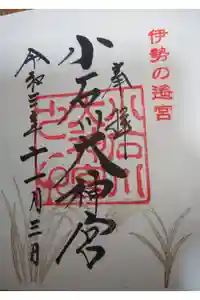 伊勢の遙宮
奉拝
小石川大神宮
令和三年十一月三日